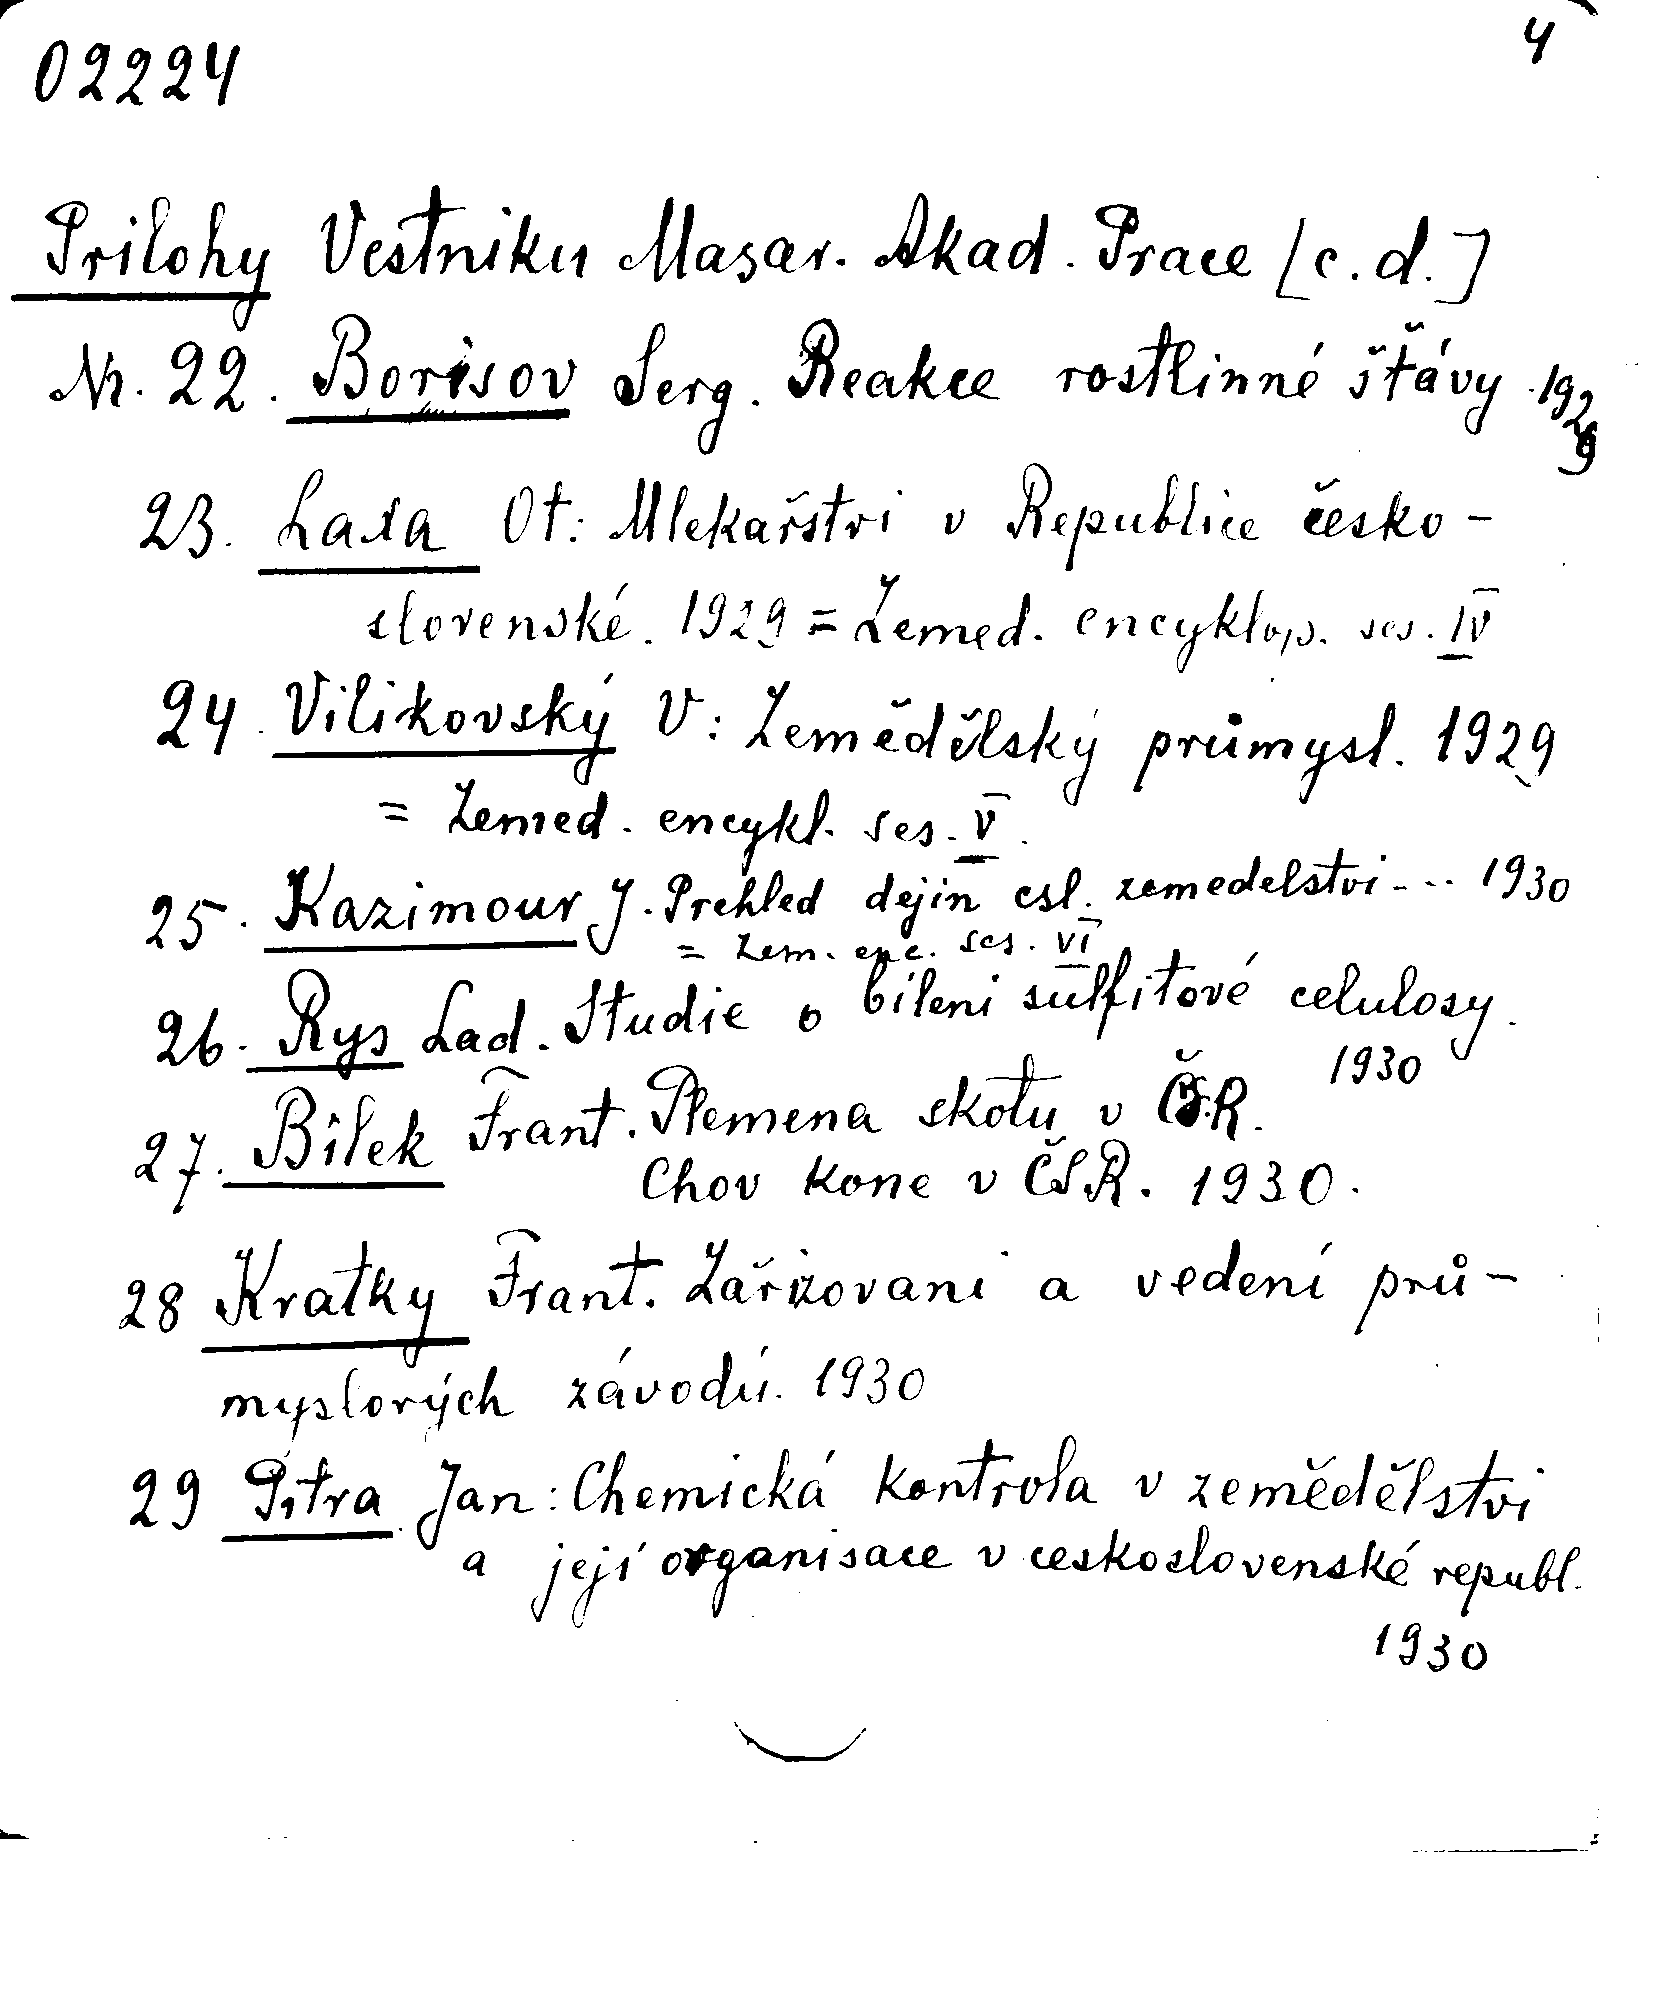 02224
4
Prilohy Vestniku Masar. Akad. Prace [c.d.]
Nr. 22. Borisov Serg. Reakce rostlinné šťávy. 1929
23. Laxa Ot: Mlekařstvi v Republice česko-
slovenské. 1929 = Zemed. encyklop. ses. IV
24. Vilikovský V: Zemědělský průmysl. 1929
= Zemed. encykl. ses. V.
25. Kazimour J. Prehled dejin csl. zemedelstvi... 1930
= Zem. enc. ses. VI
26. Rys Lad. Studie o bíleni sulfitové celulosy.
1930
27. Bílek Frant. Plemena skotu v ČSR.
Chov kone v ČSR. 1930.
28 Kratky Frant. Zařizovani a vedení prů-
myslových závodú. 1930
29 Pitra Jan: Chemická kontrola v zemědělstvi
a její organisace v ceskoslovenské republ.
1930